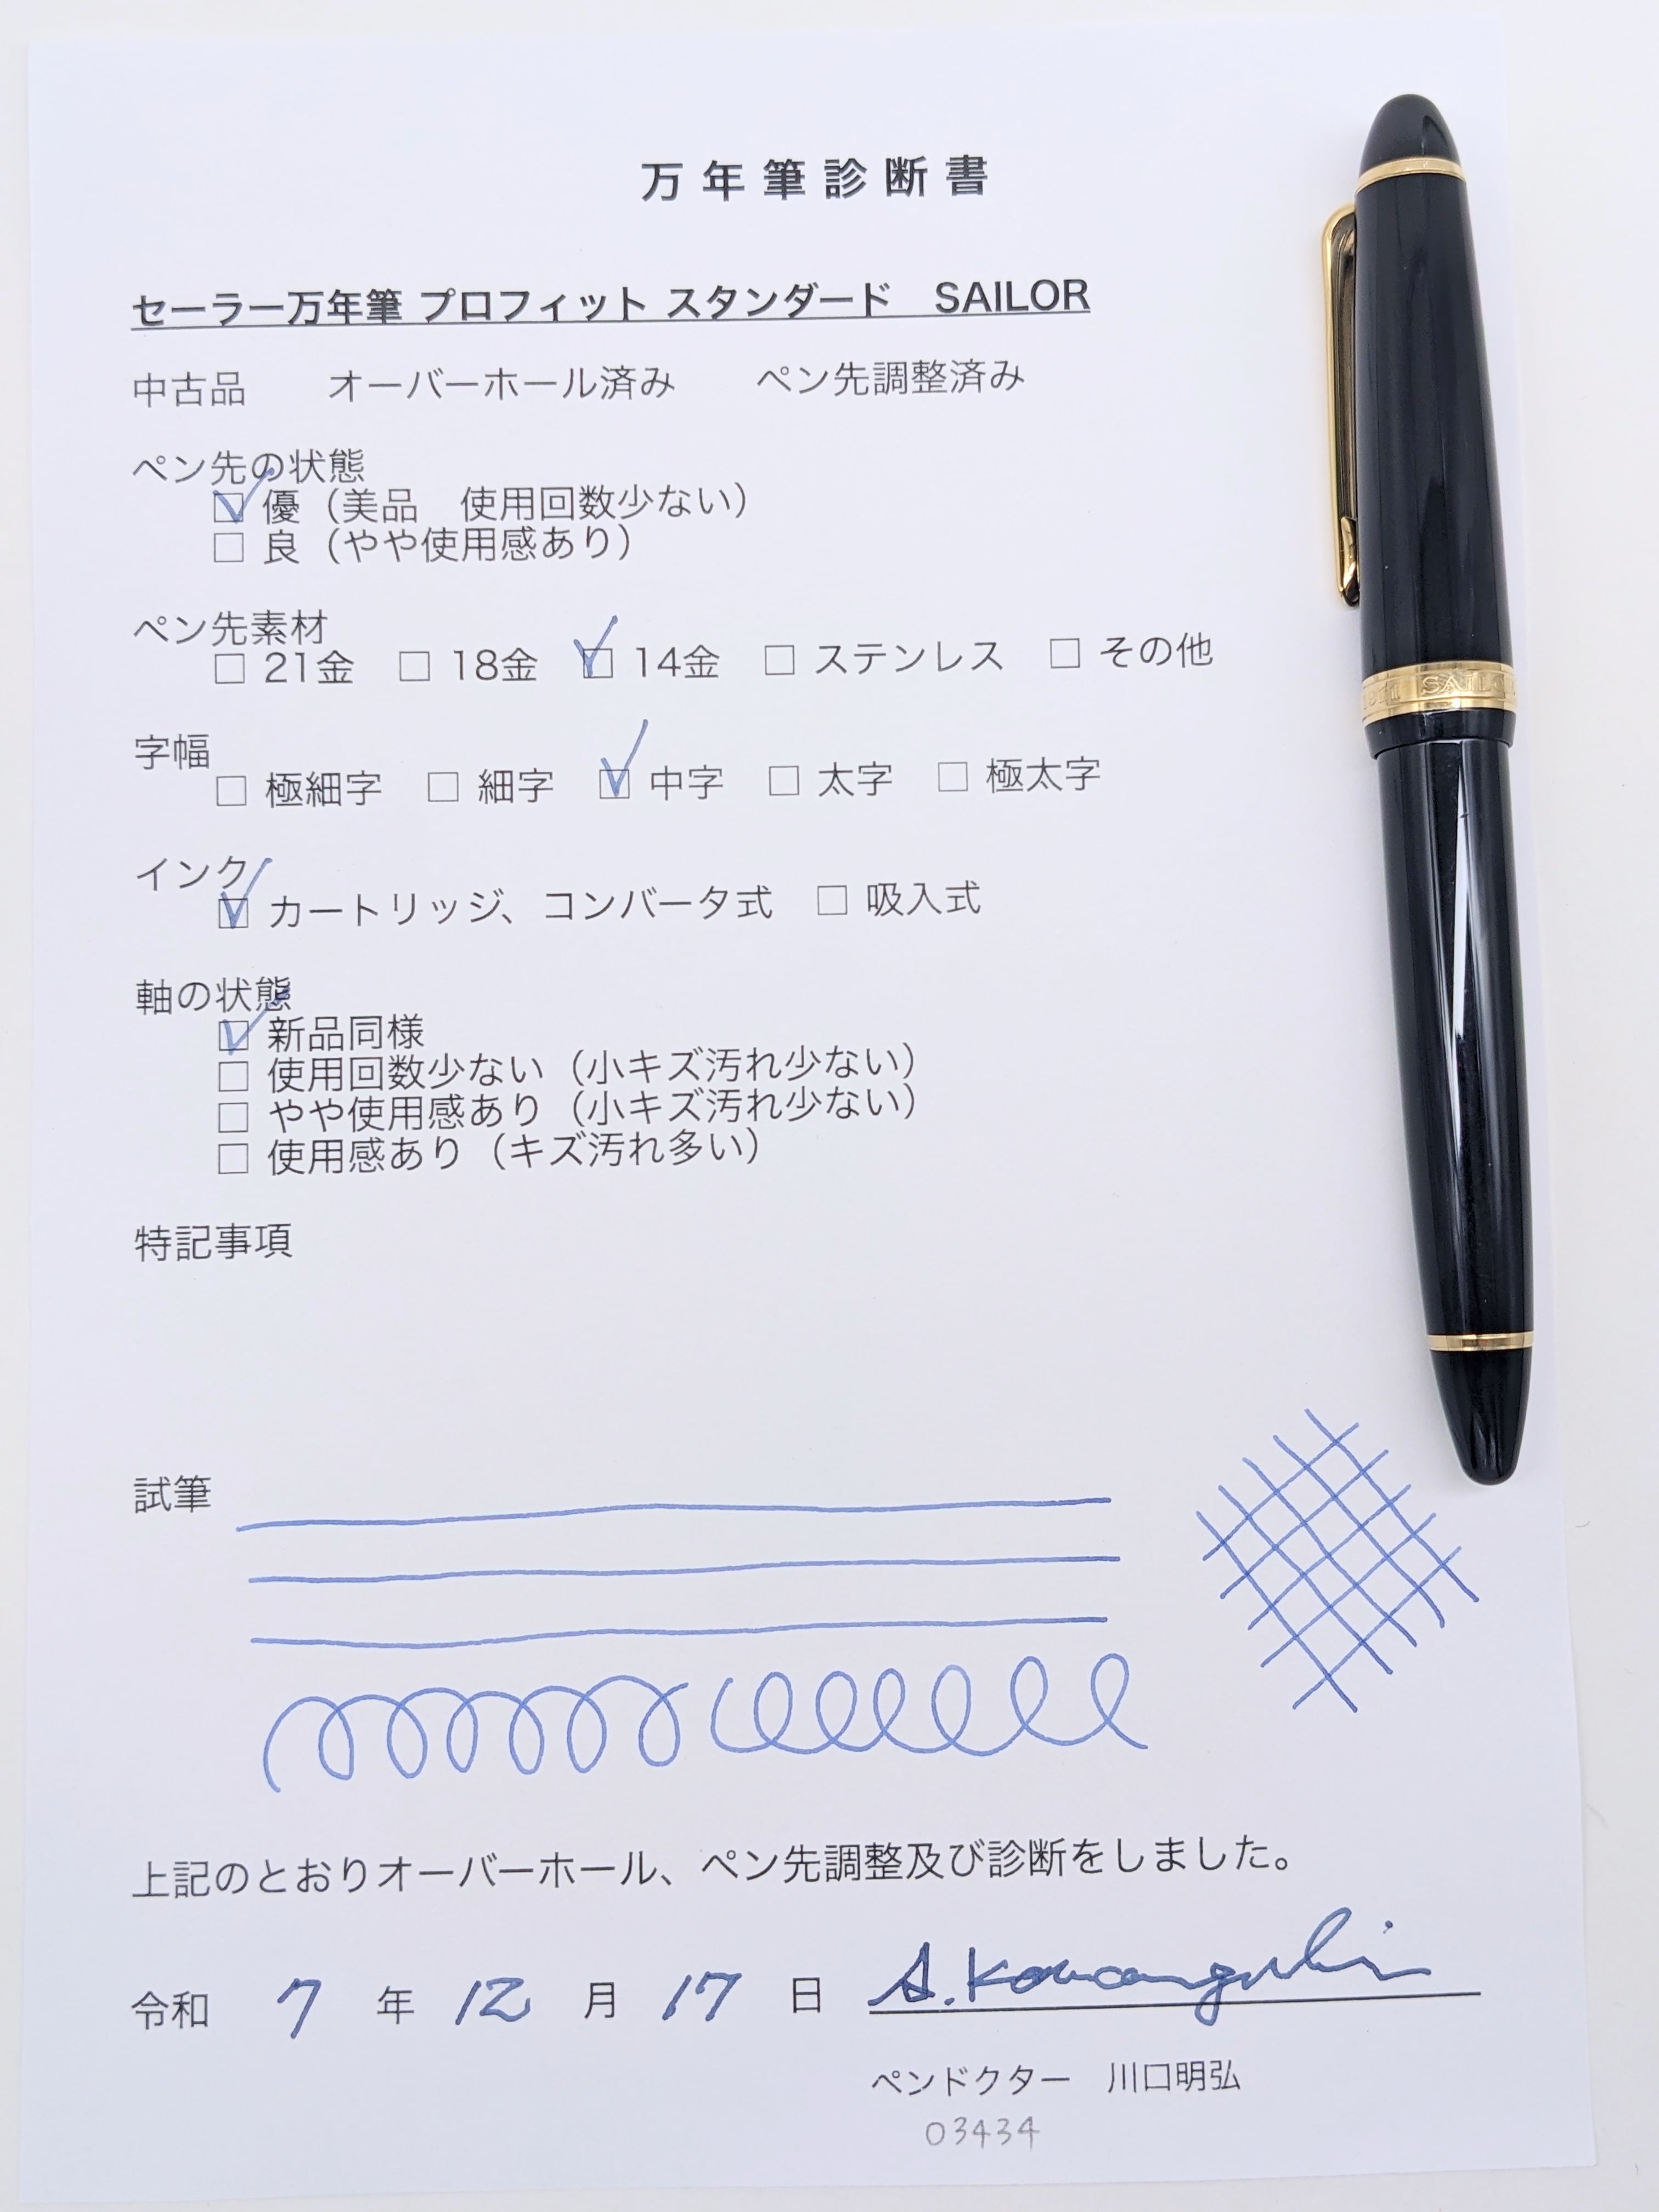 万年筆診断書
セーラー万年筆 プロフィット スタンダード　SAILOR
中古品　　オーバーホール済み　　ペン先調整済み
ペン先の状態
☑ 優（美品　使用回数少ない）
☐ 良（やや使用感あり）
ペン先素材
☐ 21金　☐ 18金　☑ 14金　☐ ステンレス　☐ その他
字幅
☐ 極細字　☐ 細字　☑ 中字　☐ 太字　☐ 極太字
インク
☑ カートリッジ、コンバータ式　☐ 吸入式
軸の状態
☑ 新品同様
☐ 使用回数少ない（小キズ汚れ少ない）
☐ やや使用感あり（小キズ汚れ少ない）
☐ 使用感あり（キズ汚れ多い）
特記事項
試筆
上記のとおりオーバーホール、ペン先調整及び診断をしました。
令和　7　年　12　月　17　日　A.Kawaguchi
ペンドクター　川口明弘
03434